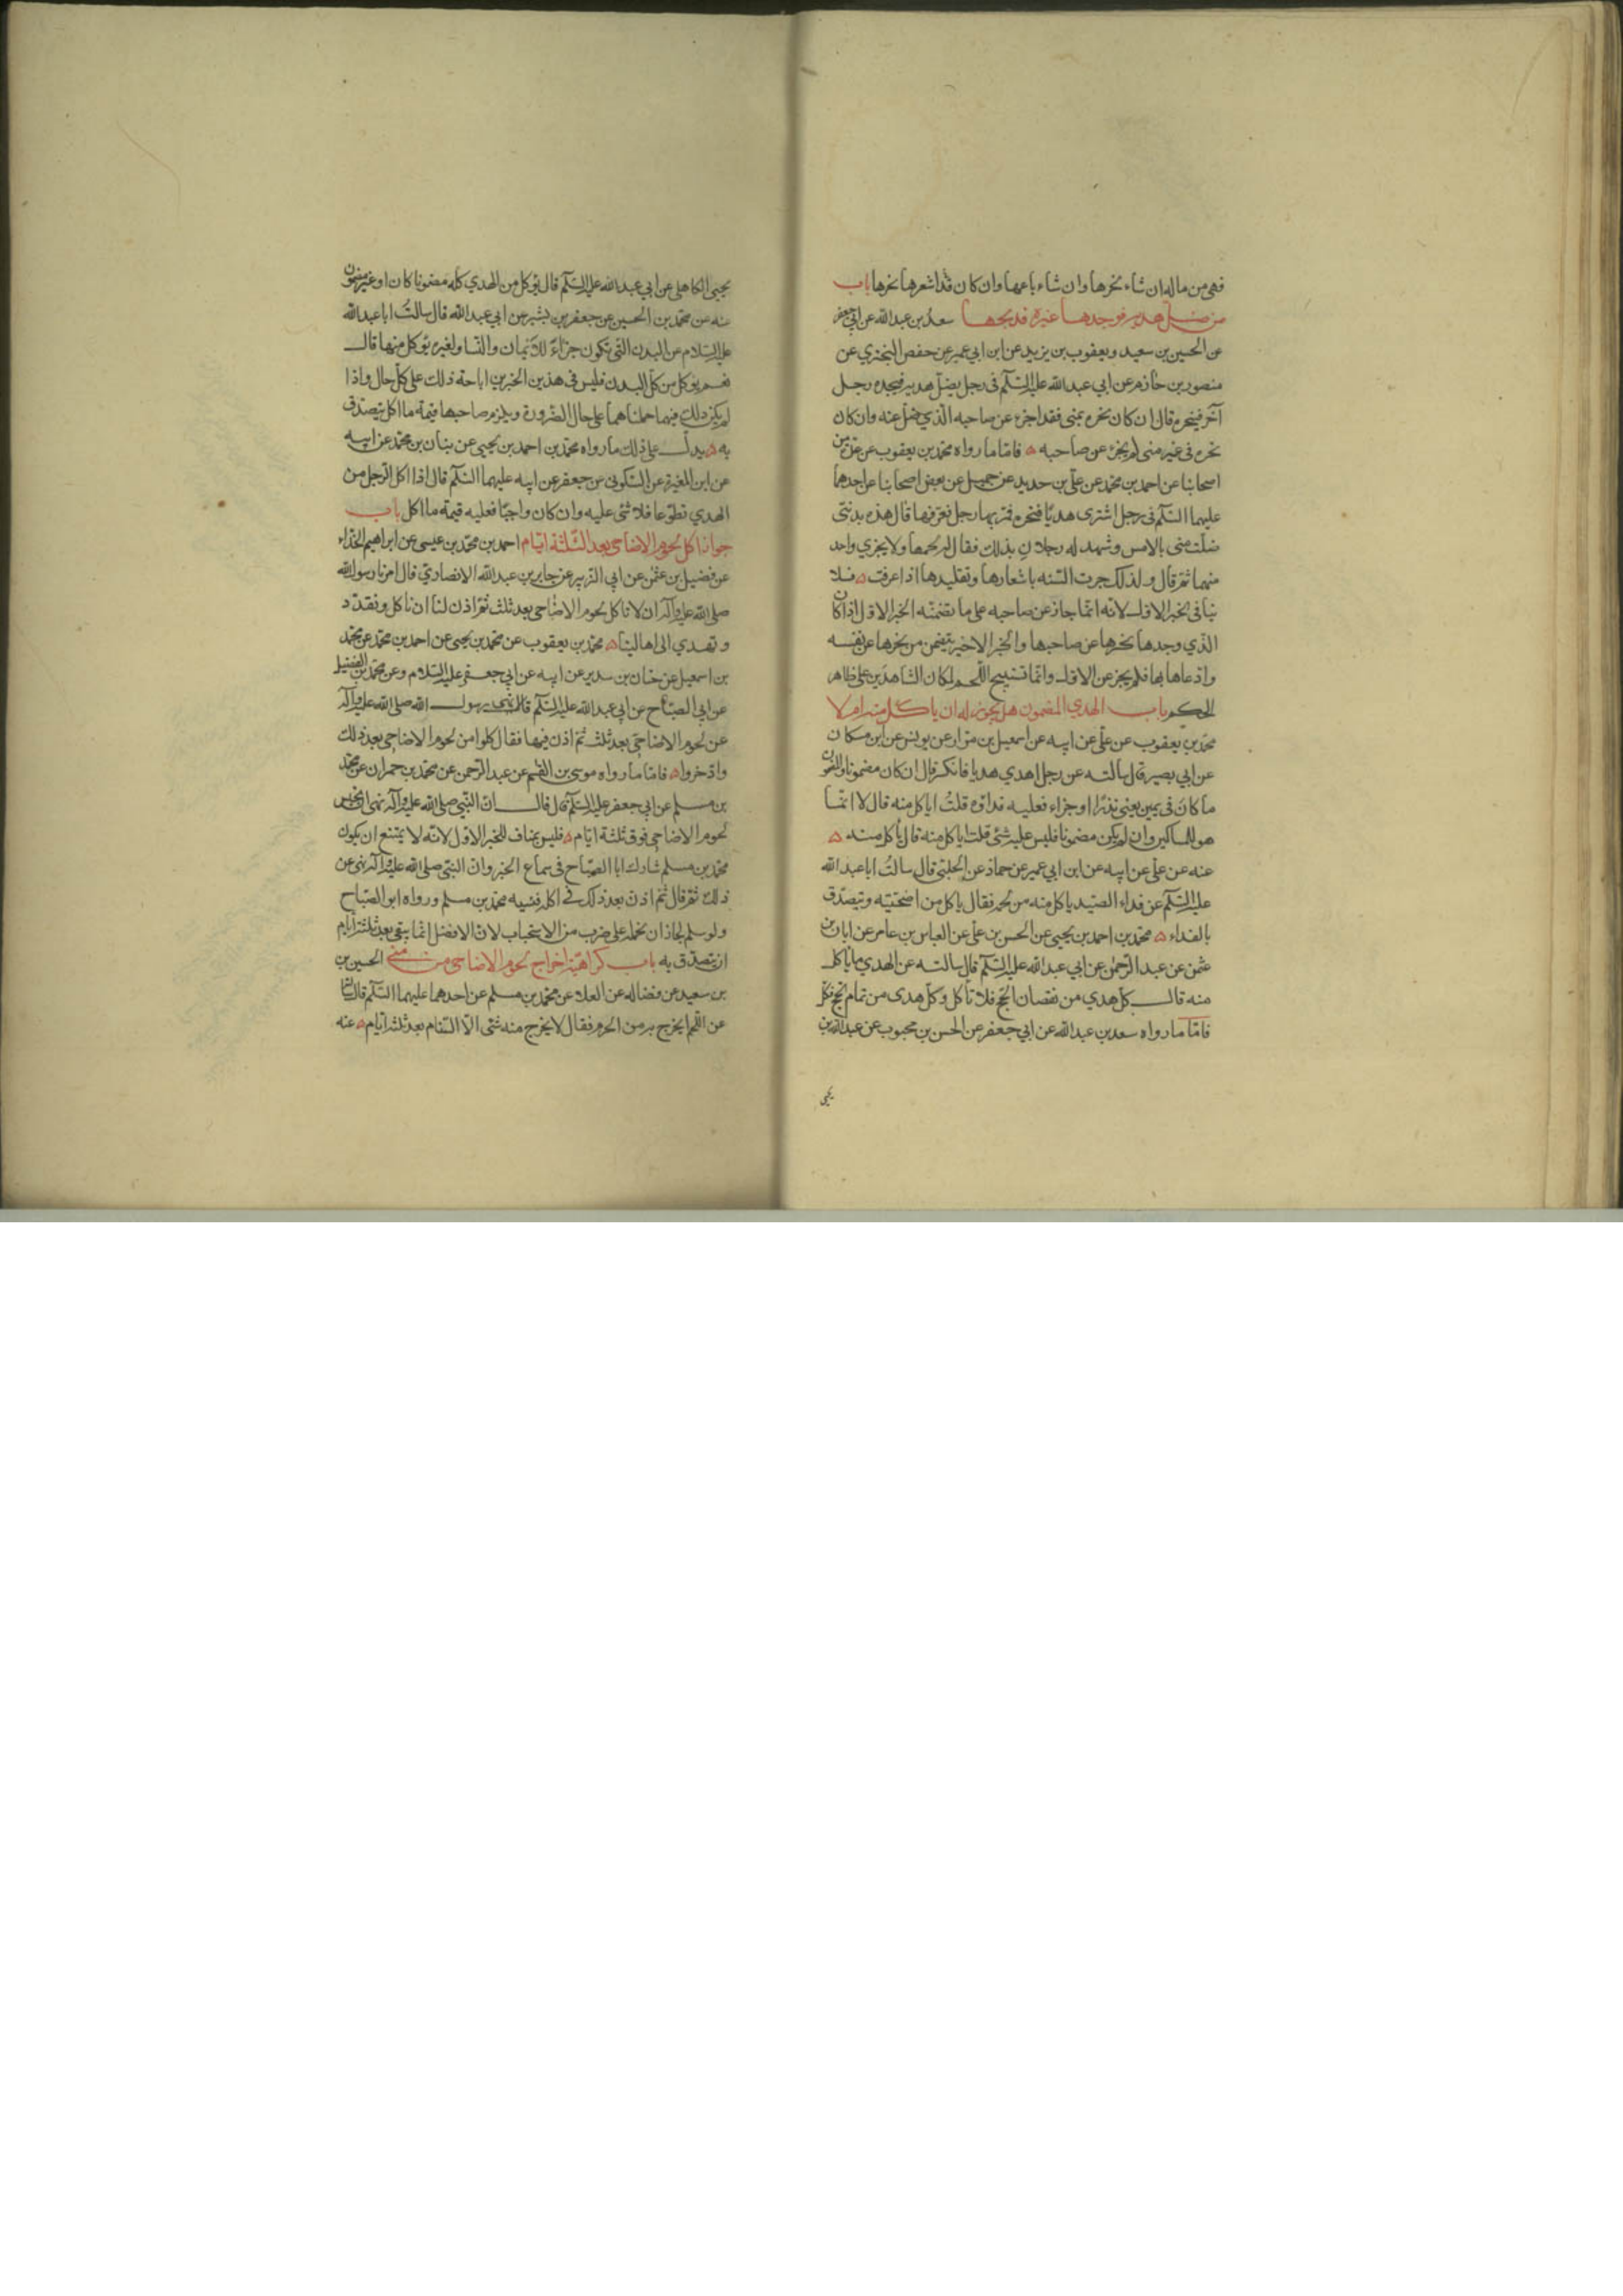 فهى من ماله ان شاء نحرها وان شاء باعها وان كان قد اشعرها نحرها باب
من ضل هديه فوجدها غيره فذبحها سعد بن عبد الله عن ابي جعفر
عن الحسين بن سعيد ويعقوب بن يزيد عن ابن ابي عمير عن حفص البختري عن
منصور بن حازم عن ابي عبد الله عليه السلم فى رجل يضل هديه فيجده رجل
آخر فينحره قال ان كان نحره بمنى فقد اجزء عن صاحبه الذي ضل عنه وان كان
نحره فى غير منى لم يجز عن صاحبه ۵ فاما ما رواه محمد بن يعقوب عن عدة من
اصحابنا عن احمد بن محمد عن على بن حديد عن جميل عن بعض اصحابنا عن احدهما
عليهما السلم فى رجل اشترى هديا فنحره فمر بها رجل فعرفها قال هذه بدنتى
ضلت منى بالامس وشهد له رجلان بذلك فقال له لحمها ولا يجزي واحد
منهما ثم قال ولذلك جرت السنه باشعارها وتقليدها اذا عرفت ۵ فلا
ينافى الخبر الاول لانه انما جاز عن صاحبه على ما تضمنه الخبر الاول اذا كان
الذي وجدها نحرها عن صاحبها والخبر الاخير يتضمن من نحرها عن نفسه
وادعاها بها فلم يجز عن الاول وانما تستبيح اللحم لمكان الشاهدين على ظاهر
الحكم باب الهدي المضمون هل يجوز له ان ياكل منه ام لا
محمد بن يعقوب عن على عن ابيه عن اسمعيل بن مرار عن يونس عن ابن مسكان
عن ابي بصير قال سالته عن رجل اهدي هديا فانكسر قال ان كان مضمونا والمضمون
ما كان فى يمين يعنى نذرا او جزاء فعليه فداؤه قلت اياكل منه قال لا انما
هو للمساكين وان لم يكن مضمونا فليس عليه شئ قلت اياكل منه قال ياكل منه ۵
عنه عن على عن ابيه عن ابن ابي عمير عن حماد عن الحلبى قال سالت ابا عبد الله
عليه السلم عن فداء الصيد ياكل منه من لحمه فقال ياكل من اضحيته ويتصدق
بالفداء ۵ محمد بن احمد بن يحيى عن الحسن بن على عن العباس بن عامر عن ابان بن
عثمن عن عبد الرحمن عن ابي عبد الله عليه السلم قال سالته عن الهدي ما ياكل
منه قال كل هدي من نقصان الحج فلا تاكل وكل هدى من تمام الحج فكل
فاما ما رواه سعد بن عبد الله عن ابي جعفر عن الحسن بن محبوب عن عبد الله بن
يحيى
يحيى الكاهلى عن ابي عبد الله عليه السلم قال يؤكل من الهدي كله مضمونا كان او غير مضمون
عنه عن محمد بن الحسين عن جعفر بن بشير عن ابي عبد الله قال سالت ابا عبد الله
عليه السلام عن البدن التى تكون جزاء للايمان والنسا ولغيره يؤكل منها قال
نعم يؤكل من كل البدن فليس فى هذين الخبرين اباحة ذلك على كل حال واذا
لم يكن ذلك فيهما حملناهما على حال الضرورة ويلزم صاحبها قيمة ما اكل يتصدق
به ۵ يدل على ذلك ما رواه محمد بن احمد بن يحيى عن بنان بن محمد عن ابيه
عن ابن المغيرة عن السكونى عن جعفر عن ابيه عليهما السلم قال اذا اكل الرجل من
الهدي تطوعا فلا شئى عليه وان كان واجبا فعليه قيمة ما اكل باب
جواز اكل لحوم الاضاحى بعد الثلثة ايام احمد بن محمد بن عيسى عن ابراهيم الحذاء
عن فضيل بن عثمن عن ابي الزبير عن جابر بن عبد الله الانصاري قال امرنا رسول الله
صلى الله عليه وآله ان لا ناكل لحوم الاضاحى بعد ثلث ثم اذن لنا ان ناكل ونقدد
ونهدي الى اهالينا ۵ محمد بن يعقوب عن محمد بن يحيى عن احمد بن محمد عن محمد
بن اسمعيل عن حنان بن سدير عن ابيه عن ابي جعفر عليه السلام وعن محمد بن الفضيل
عن ابي الصباح عن ابي عبد الله عليه السلم قالا نهى رسول الله صلى الله عليه وآله
عن لحوم الاضاحى بعد ثلث ثم اذن فيها فقال كلوا من لحوم الاضاحى بعد ذلك
وادخروا ۵ فاما ما رواه موسى بن القسم عن عبد الرحمن عن محمد بن حمران عن محمد
بن مسلم عن ابي جعفر عليه السلم قال قال ان النبى صلى الله عليه وآله نهى ان تحبس
لحوم الاضاحى فوق ثلثة ايام ۵ فليس بمناف للخبر الاول لانه لا يمتنع ان يكون
محمد بن مسلم شارك ابا الصباح فى سماع الخبر وان النبى صلى الله عليه وآله نهى عن
ذلك ثم قال ثم اذن بعد ذلك في اكله فنسيه محمد بن مسلم ورواه ابو الصباح
ولو سلم لجاز ان نحمله على ضرب من الاستحباب لان الافضل انما يبقى بعد ثلثة ايام
ان يتصدق به باب كراهية اخراج لحوم الاضاحى من منى الحسين بن
بن سعيد عن فضاله عن العلا عن محمد بن مسلم عن احدهما عليهما السلم قال سالته
عن اللحم ايخرج به من الحرم فقال لا يخرج منه شئى الا السنام بعد ثلثة ايام ۵ عنه